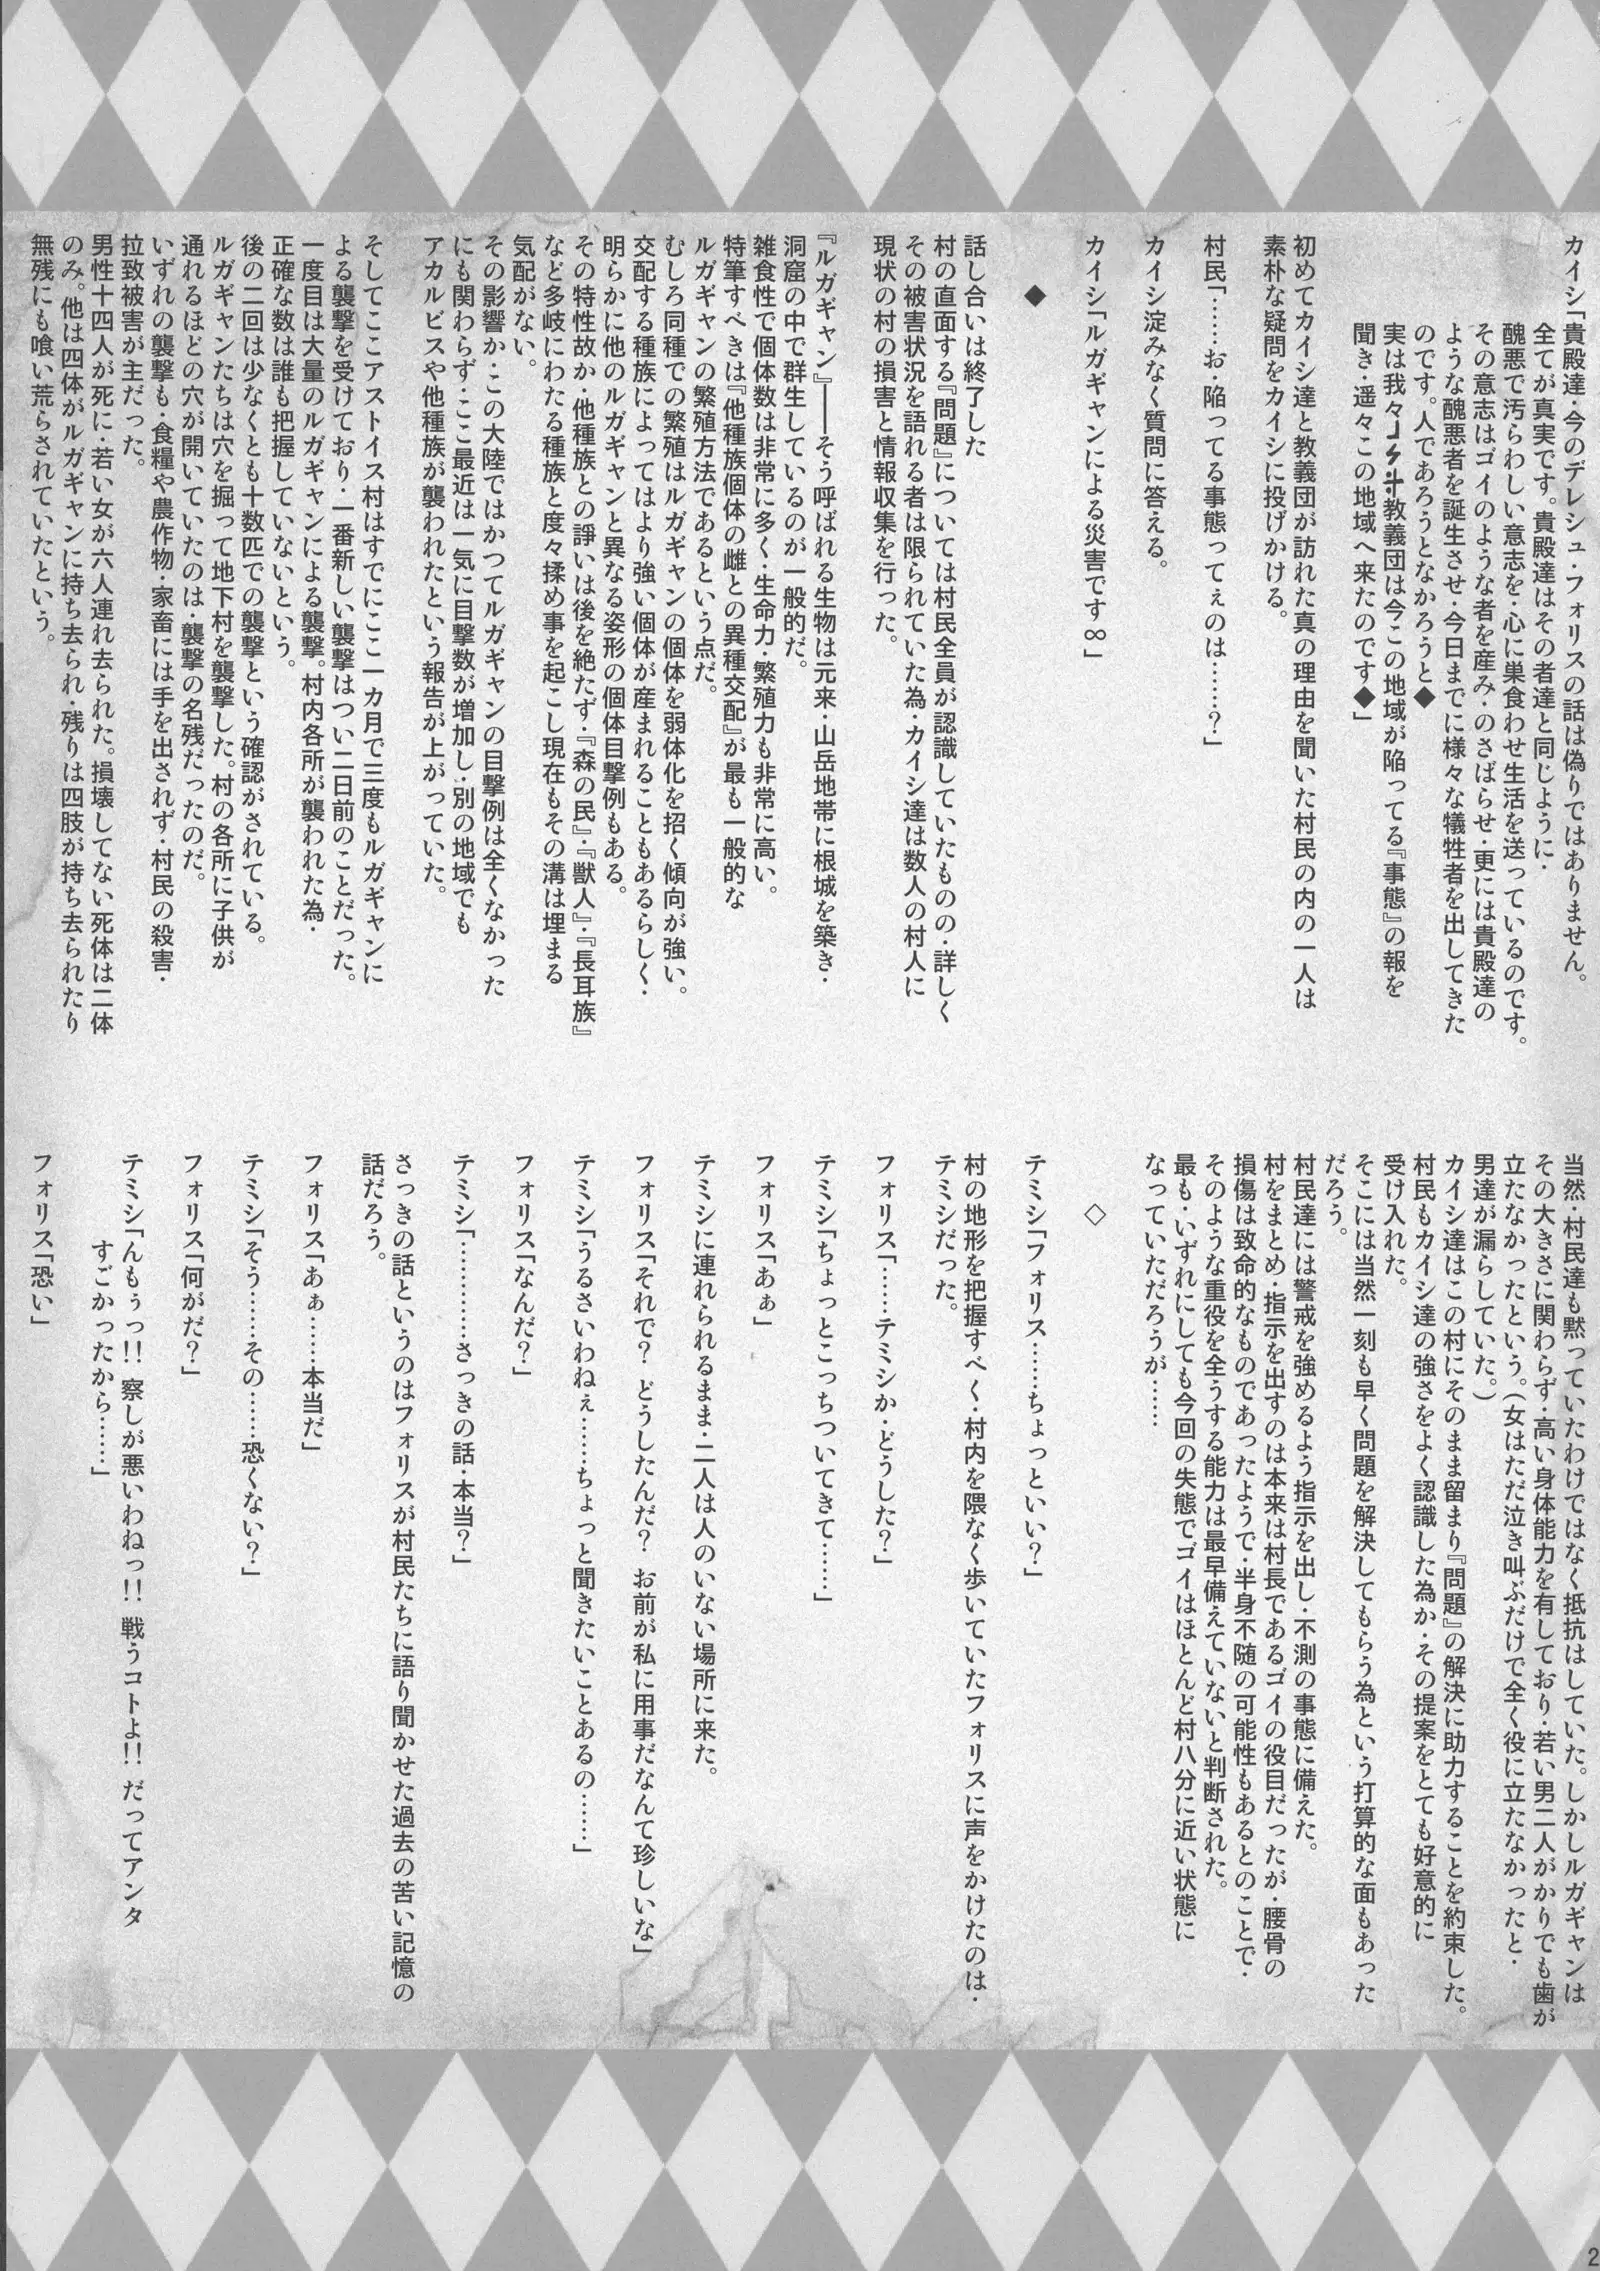 カイシ「貴殿達・今のデレシュ・フォリスの話は偽りではありません。
全てが真実です。貴殿達はその者達と同じように・
醜悪で汚らわしい意志を・心に巣食わせ生活を送っているのです。
その意志はゴイのような者を産み・のさばらせ・更には貴殿達の
ような醜悪者を誕生させ・今日までに様々な犠牲者を出してきた
のです。人であろうとなかろうと◆
実は我々教義団は今この地域が陥ってる『事態』の報を
聞き・遥々この地域へ来たのです◆」
初めてカイシ達と教義団が訪れた真の理由を聞いた村民の内の一人は
素朴な疑問をカイシに投げかける。
村民「……お・陥ってる事態ってぇのは……？」
カイシ淀みなく質問に答える。
カイシ「ルガギャンによる災害です∞」
◆
話し合いは終了した
村の直面する『問題』については村民全員が認識していたものの・詳しく
その被害状況を語れる者は限られていた為・カイシ達は数人の村人に
現状の村の損害と情報収集を行った。
『ルガギャン』――そう呼ばれる生物は元来・山岳地帯に根城を築き・
洞窟の中で群生しているのが一般的だ。
雑食性で個体数は非常に多く・生命力・繁殖力も非常に高い。
特筆すべきは『他種族個体の雌との異種交配』が最も一般的な
ルガギャンの繁殖方法であるという点だ。
むしろ同種での繁殖はルガギャンの個体を弱体化を招く傾向が強い。
交配する種族によってはより強い個体が産まれることもあるらしく・
明らかに他のルガギャンと異なる姿形の個体目撃例もある。
その特性故か・他種族との諍いは後を絶たず・『森の民』・『獣人』・『長耳族』
など多岐にわたる種族と度々揉め事を起こし現在もその溝は埋まる
気配がない。
その影響か・この大陸ではかつてルガギャンの目撃例は全くなかった
にも関わらず・ここ最近は一気に目撃数が増加し・別の地域でも
アカルビスや他種族が襲われたという報告が上がっていた。
そしてここアストイス村はすでにここ一カ月で三度もルガギャンに
よる襲撃を受けており・一番新しい襲撃はつい二日前のことだった。
一度目は大量のルガギャンによる襲撃。村内各所が襲われた為・
正確な数は誰も把握していないという。
後の二回は少なくとも十数匹での襲撃という確認がされている。
ルガギャンたちは穴を掘って地下村を襲撃した。村の各所に子供が
通れるほどの穴が開いていたのは・襲撃の名残だったのだ。
いずれの襲撃も・食糧や農作物・家畜には手を出されず・村民の殺害・
拉致被害が主だった。
男性十四人が死に・若い女が六人連れ去られた。損壊してない死体は二体
のみ。他は四体がルガギャンに持ち去られ・残りは四肢が持ち去られたり
無残にも喰い荒らされていたという。
当然・村民達も黙っていたわけではなく抵抗はしていた。しかしルガギャンは
その大きさに関わらず・高い身体能力を有しており・若い男二人がかりでも歯が
立たなかったという。(女はただ泣き叫ぶだけで全く役に立たなかったと・
男達が漏らしていた。)
カイシ達はこの村にそのまま留まり『問題』の解決に助力することを約束した。
村民もカイシ達の強さをよく認識した為か・その提案をとても好意的に
受け入れた。
そこには当然一刻も早く問題を解決してもらう為という打算的な面もあった
だろう。
村民達には警戒を強めるよう指示を出し・不測の事態に備えた。
村をまとめ・指示を出すのは本来は村長であるゴイの役目だったが・腰骨の
損傷は致命的なものであったようで・半身不随の可能性もあるとのことで・
そのような重役を全うする能力は最早備えていないと判断された。
最も・いずれにしても今回の失態でゴイはほとんど村八分に近い状態に
なっていただろうが……
◇
テミシ「フォリス……ちょっといい？」
村の地形を把握すべく・村内を隈なく歩いていたフォリスに声をかけたのは・
テミシだった。
フォリス「……テミシか・どうした？」
テミシ「ちょっとこっちついてきて……」
フォリス「あぁ」
テミシに連れられるまま・二人は人のいない場所に来た。
フォリス「それで？ どうしたんだ？ お前が私に用事だなんて珍しいな」
テミシ「うるさいわねぇ……ちょっと聞きたいことあるの……」
フォリス「なんだ？」
テミシ「…………さっきの話・本当？」
さっきの話というのはフォリスが村民たちに語り聞かせた過去の苦い記憶の
話だろう。
フォリス「あぁ……本当だ」
テミシ「そう……その……恐くない？」
フォリス「何がだ？」
テミシ「んもぅっ!! 察しが悪いわねっ!! 戦うコトよ!! だってアンタ
すごかったから……」
フォリス「恐い」
2